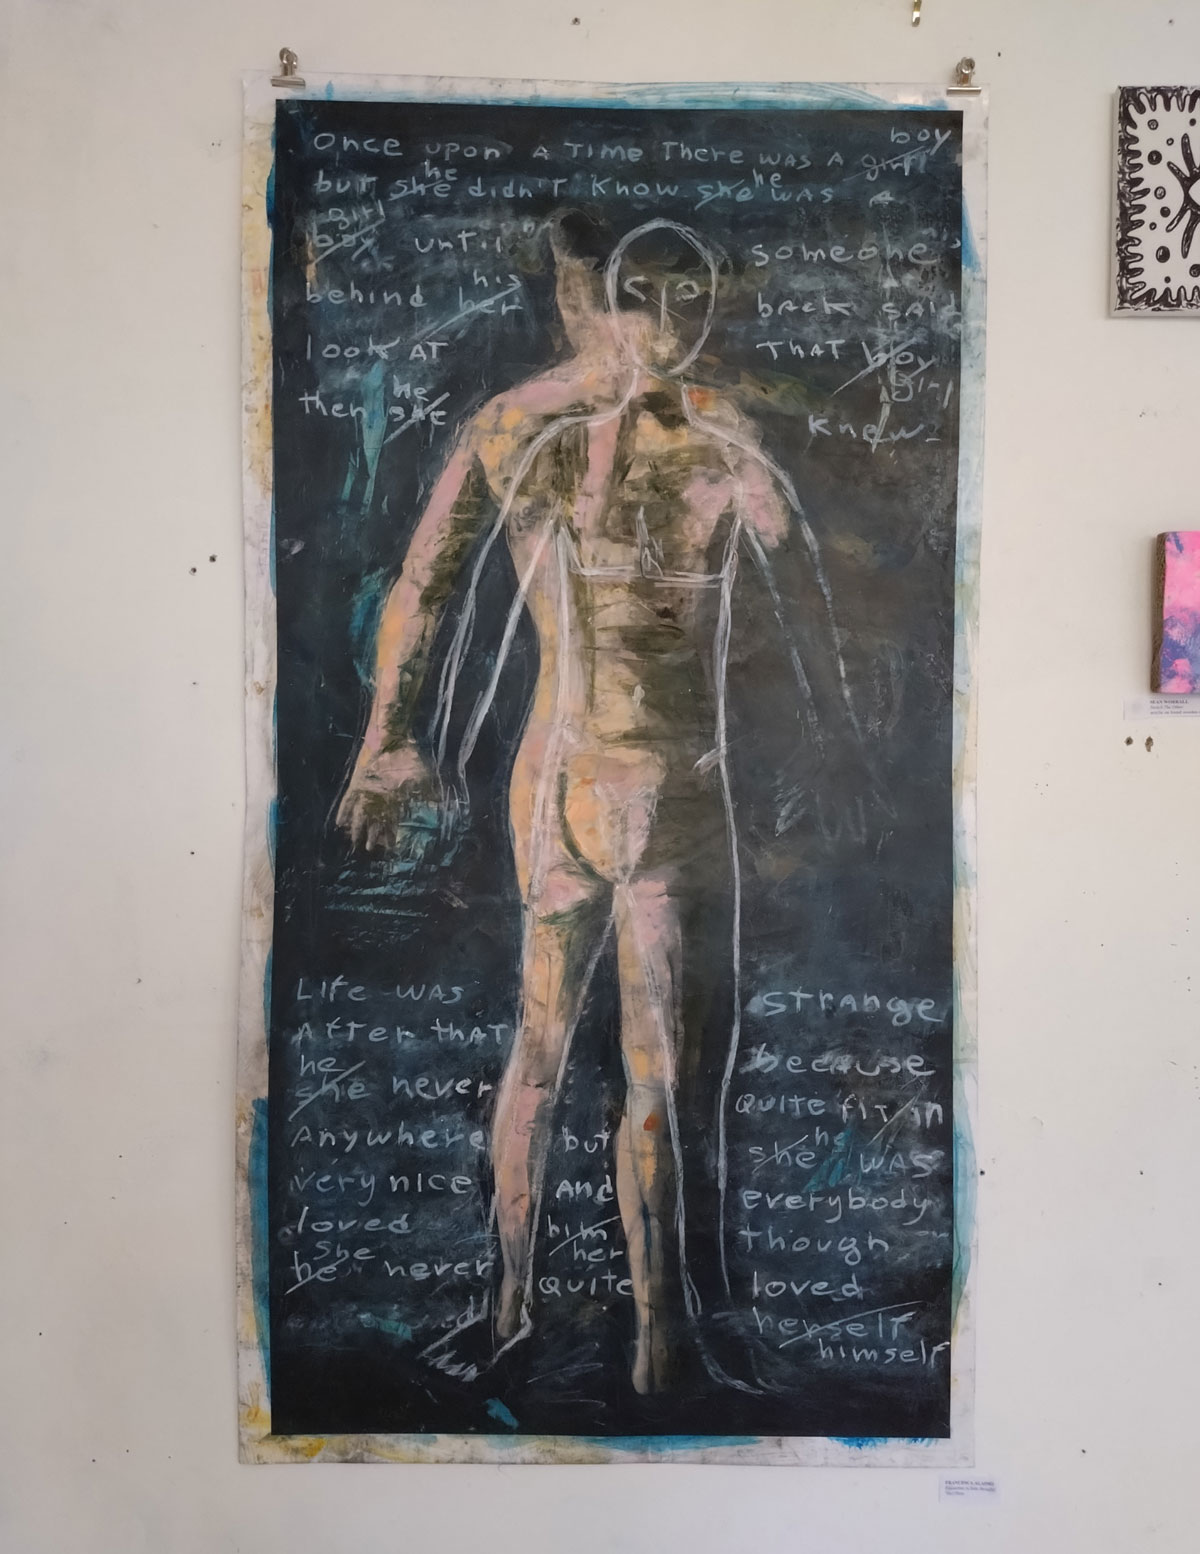 boy
Once upon A TIME There WAS A girl
he he
but she didn't Know she WAS A
girl
boy until someone
his
behind her back said
look AT THAT boy
girl
he
then she Knew
Life WAS STRANGE
After thAT because
he
she never QUITE fiT in
he
Anywhere but she WAS
very nice And everybody
loved him though
she her
he never QUITE loved
herself
himself